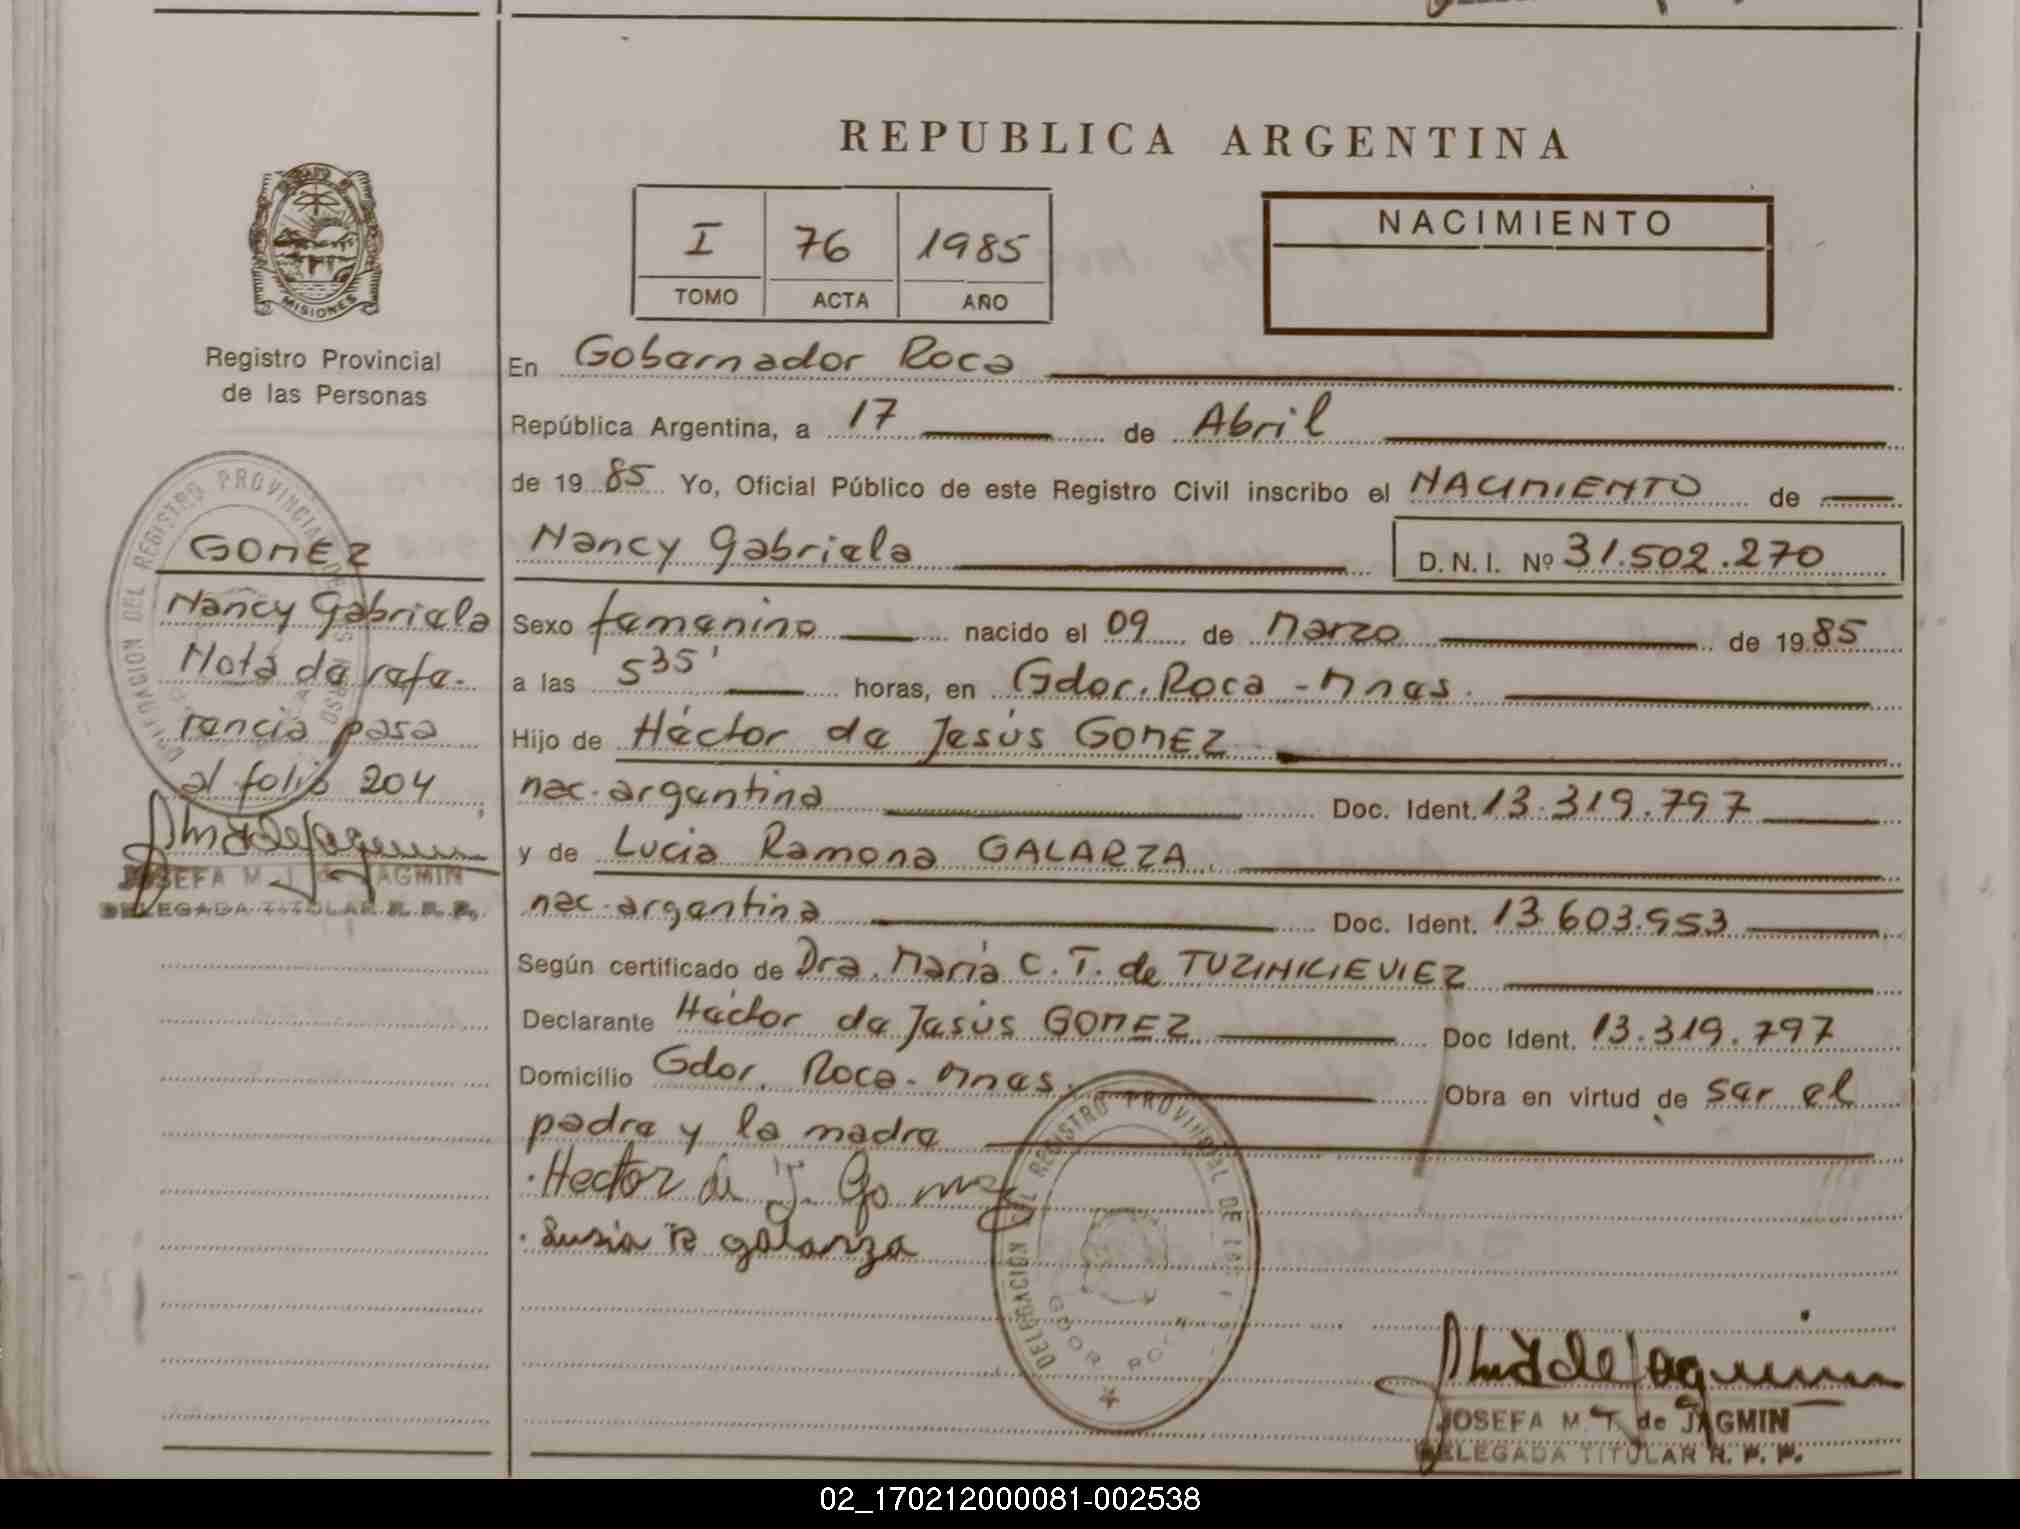 REPUBLICA ARGENTINA
I 76 1985
TOMO ACTA AÑO
NACIMIENTO
MISIONES
Registro Provincial
de las Personas
En Gobernador Roca
República Argentina, a 17 de Abril
de 1985 Yo, Oficial Público de este Registro Civil inscribo el NACIMIENTO de
Nancy Gabriela D.N.I. Nº 31.502.270
Sexo femenino nacido el 09 de Marzo de 1985
a las 5 35' horas, en Gdor. Roca - Mnes.
Hijo de Héctor de Jesús GOMEZ
nac. argentina Doc. Ident. 13.319.797
y de Lucia Ramona GALARZA.
nac. argentina Doc. Ident. 13.603.953
Según certificado de Dra. María C. T. de TUZINKIEVIEZ
Declarante Héctor de Jesús GOMEZ Doc Ident. 13.319.797
Domicilio Gdor. Roca - Mnes. Obra en virtud de ser el
padre y la madre
Hector de J. Gomez
Lusia R galarza
DELEGACION DEL REGISTRO PROVINCIAL DE LAS
GDOR ROCA
JOSEFA M. T. de JAGMIN
DELEGADA TITULAR R. P. P.
GOMEZ
Nancy Gabriela
Nota de refe-
rencia pasa
al folio 204
DELEGACION DEL REGISTRO PROVINCIAL DE LAS
JOSEFA M. T. de JAGMIN
DELEGADA TITULAR R. P. P.
02_170212000081-002538